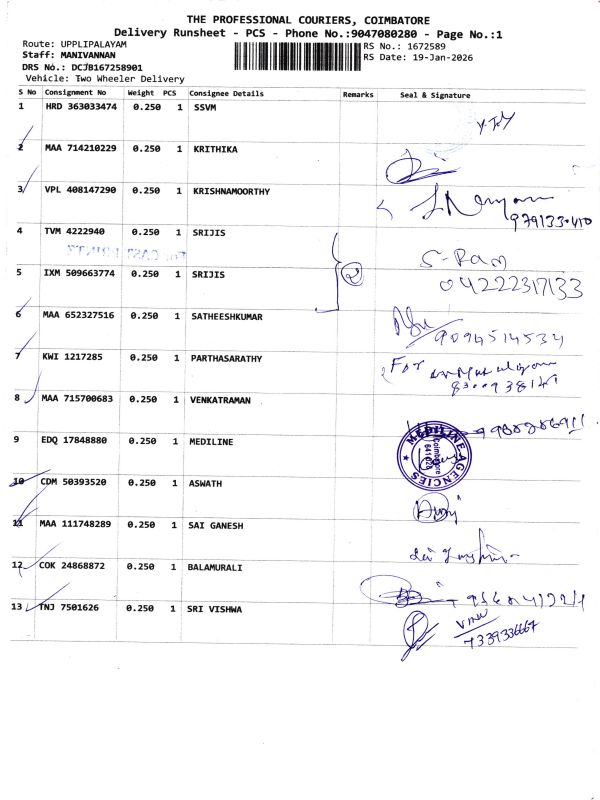 THE PROFESSIONAL COURIERS, COIMBATORE
Delivery Runsheet - PCS - Phone No.:9047080280 - Page No.:1
Route: UPPLIPALAYAM
Staff: MANIVANNAN
DRS No.: DCJB167258901
Vehicle: Two Wheeler Delivery
RS No.: 1672589
RS Date: 19-Jan-2026
S No Consignment No Weight PCS Consignee Details Remarks Seal & Signature
1 HRD 363033474 0.250 1 SSVM
2 MAA 714210229 0.250 1 KRITHIKA
3 VPL 408147290 0.250 1 KRISHNAMOORTHY
4 TVM 4222940 0.250 1 SRIJIS S-Ram
5 IXM 509663774 0.250 1 SRIJIS 2 04222317133
6 MAA 652327516 0.250 1 SATHEESHKUMAR 9094514534
7 KWI 1217285 0.250 1 PARTHASARATHY For
8 MAA 715700683 0.250 1 VENKATRAMAN
9 EDQ 17848880 0.250 1 MEDILINE MEDILINE AGENCIES Coimbatore
10 CDM 50393520 0.250 1 ASWATH
11 MAA 111748289 0.250 1 SAI GANESH
12 COK 24868872 0.250 1 BALAMURALI
13 TNJ 7501626 0.250 1 SRI VISHWA
VINU
7339336667